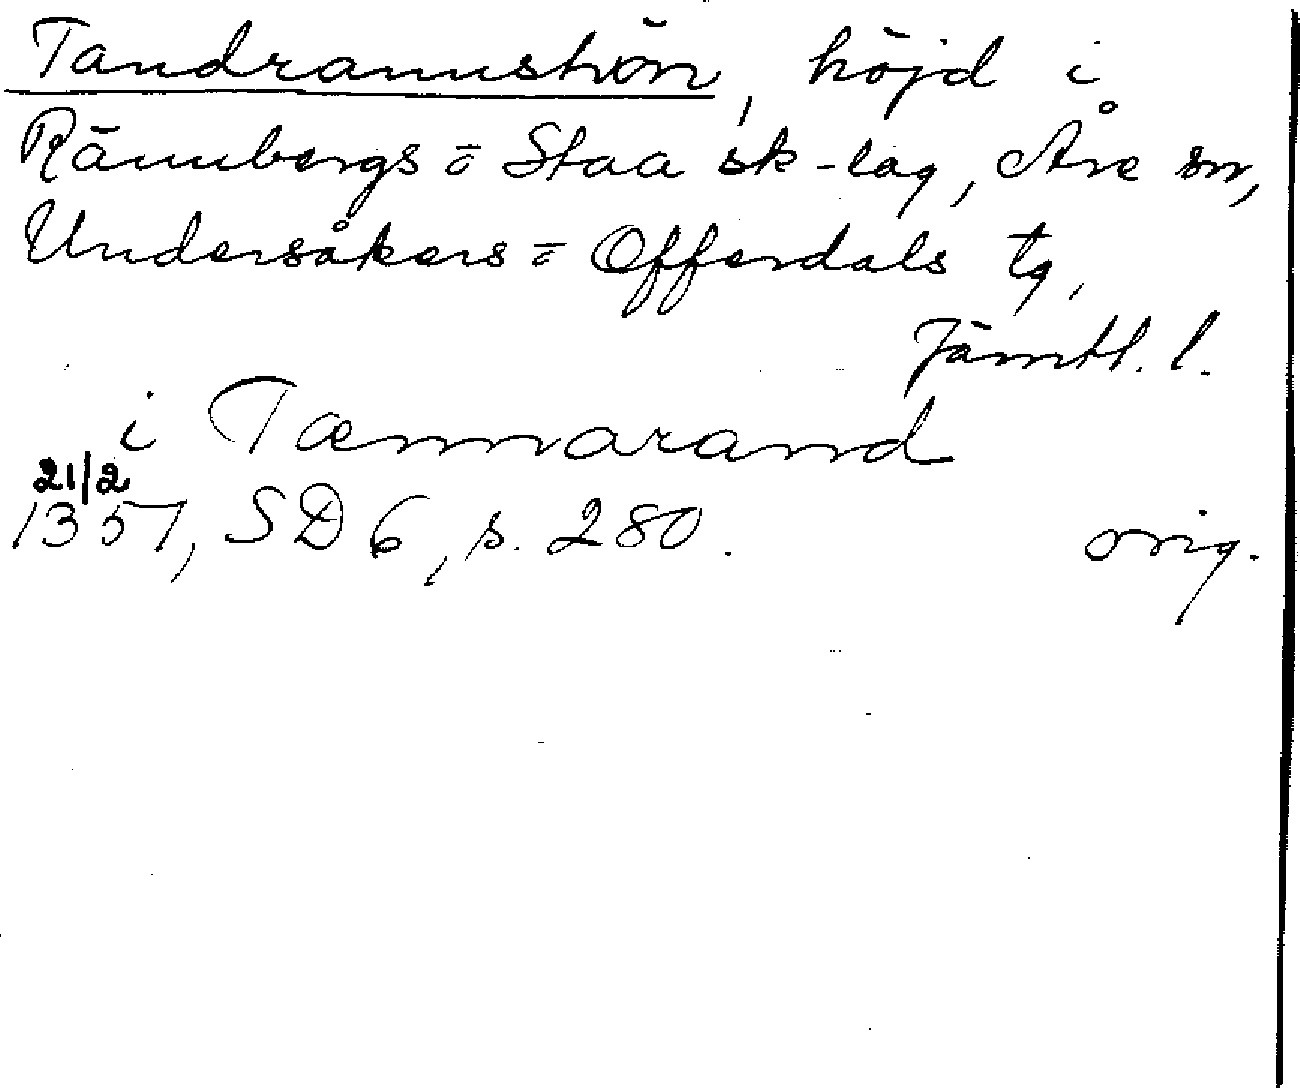 Tandrannströn, höjd i
Rännbergs o Staa sk-lag, Åre sn,
Undersåkers o Offerdals tg,
Jämtl. l.
i Tænnarand
21/2
1351, SD 6, s. 280. orig.